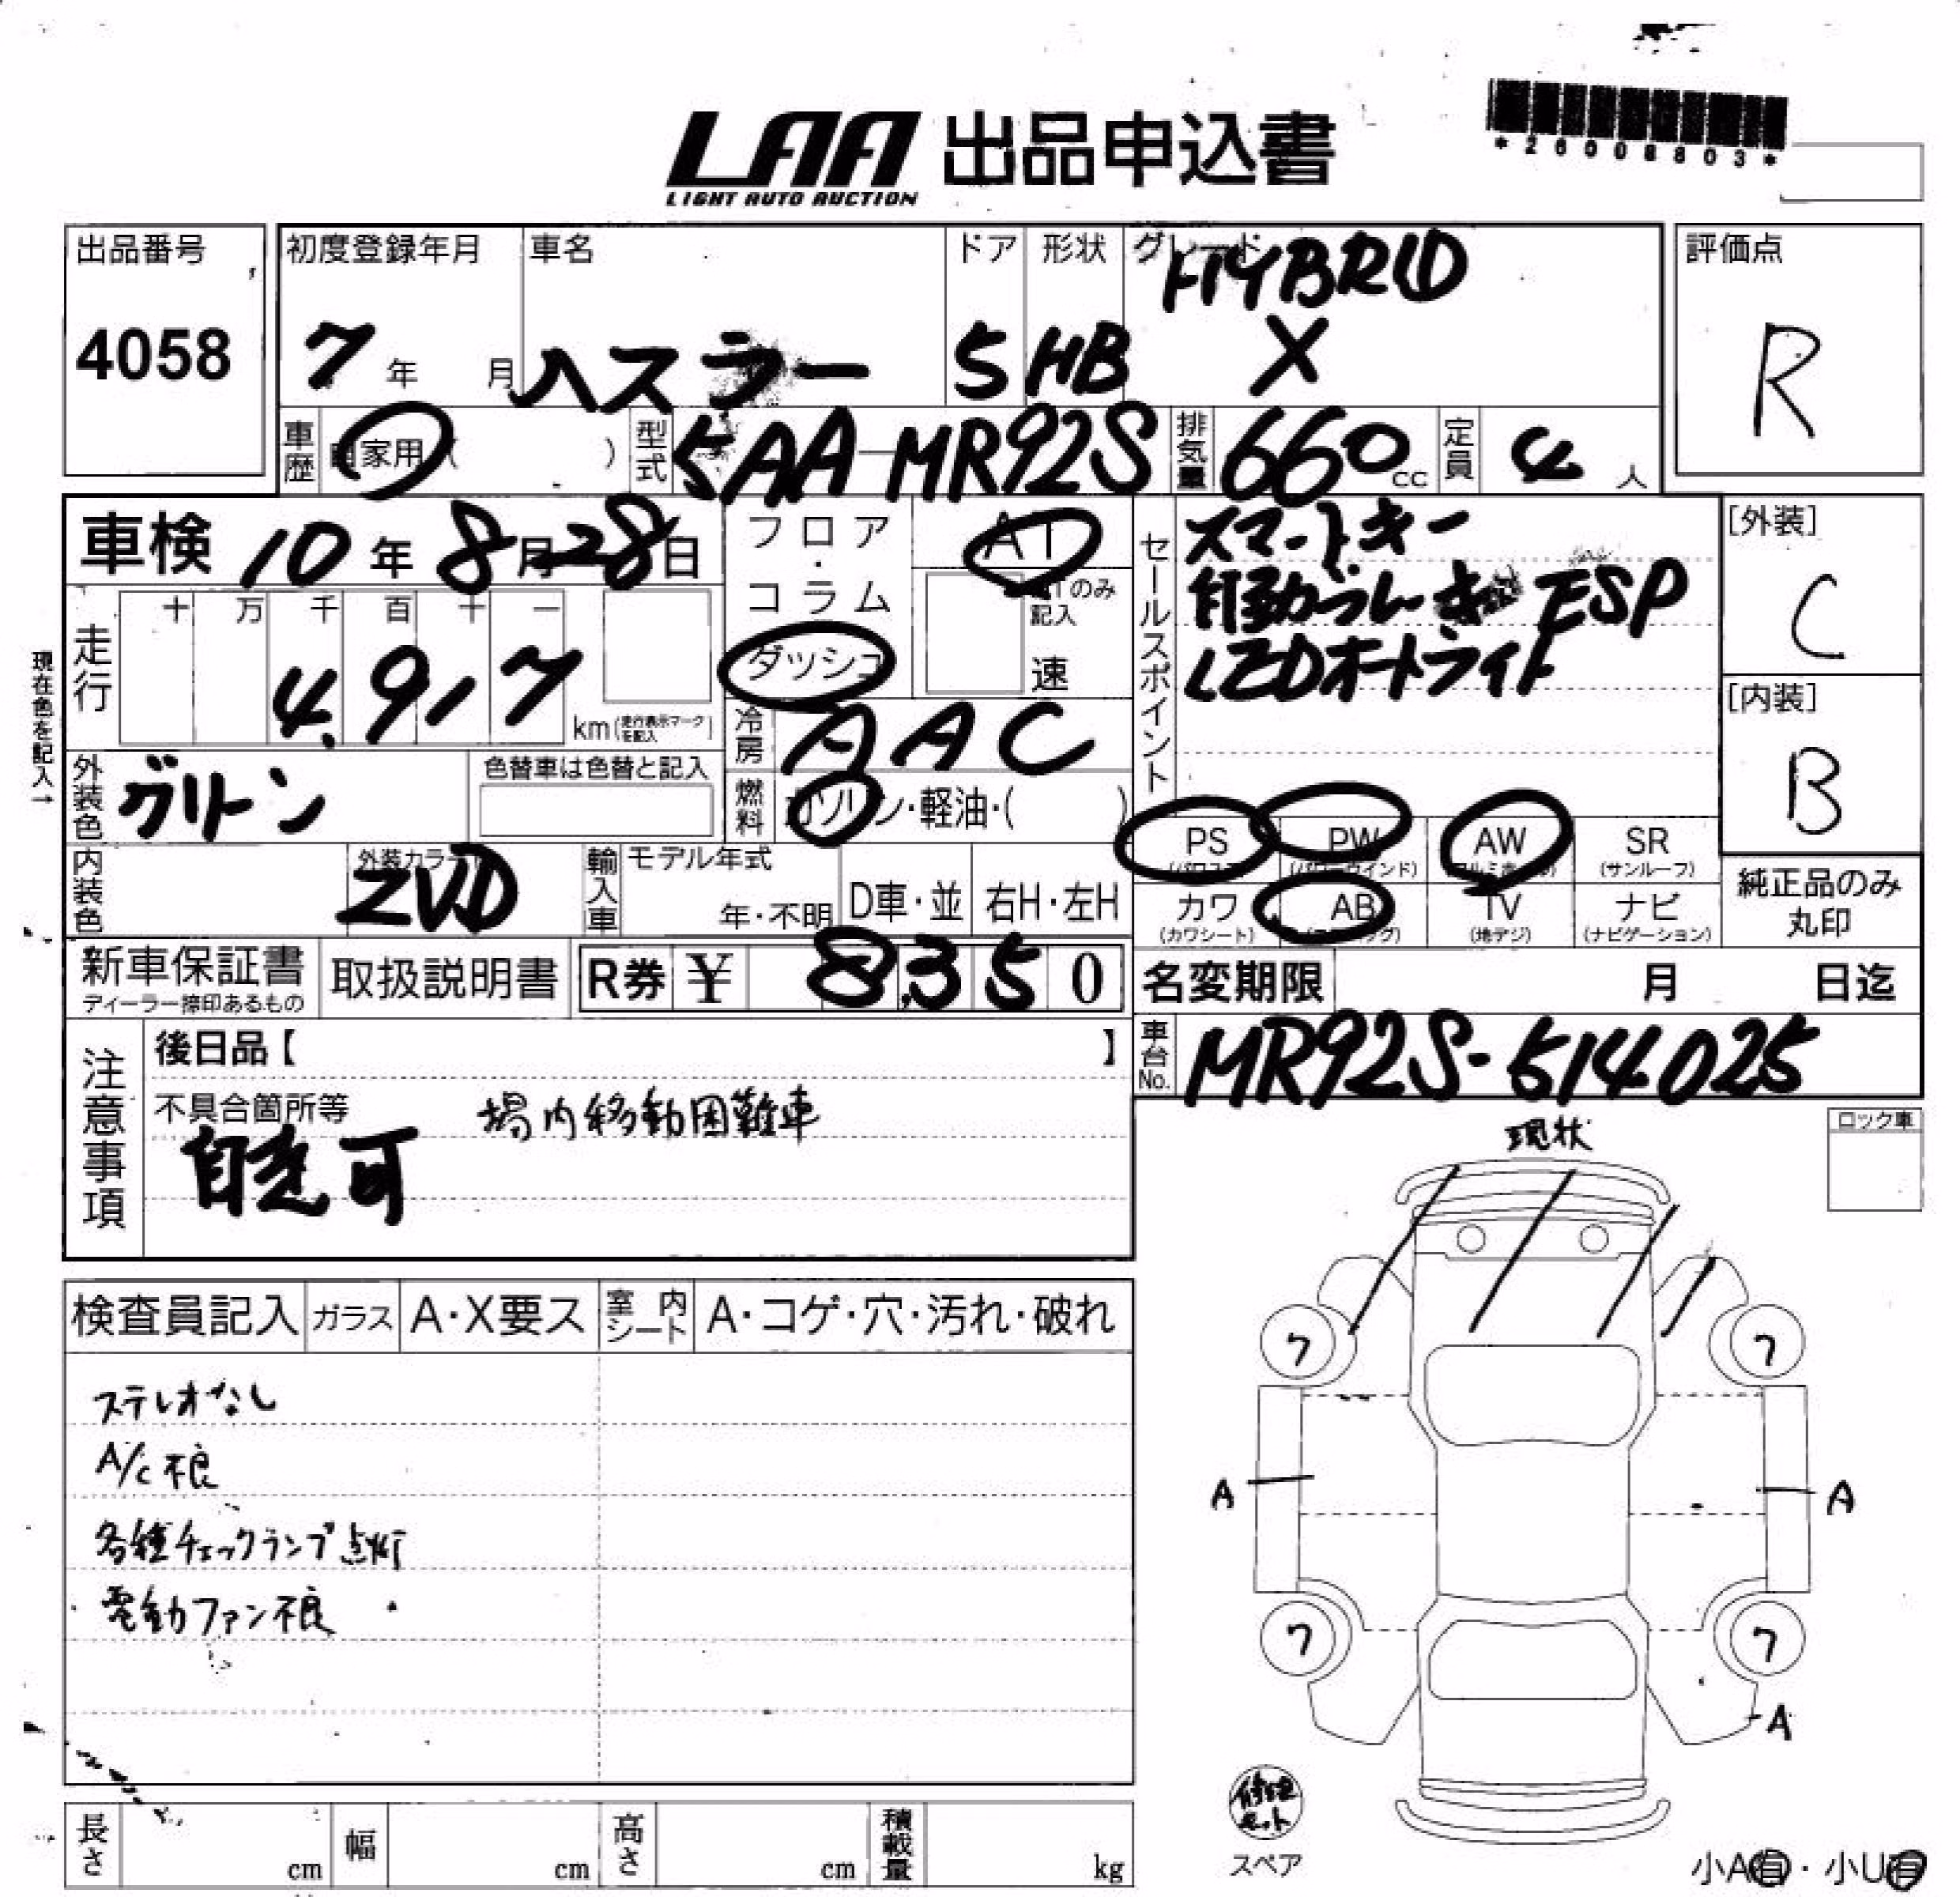 LAA 出品申込書
LIGHT AUTO AUCTION
*26008803*
出品番号
4058
初度登録年月
7年 月
車名
ハスラー
ドア
5
形状
HB
グレード
HYBRID
X
評価点
R
車歴
自家用( )
型式
5AA-MR92S
排気量
660cc
定員
4人
車検 10年8月28日
フロア・コラム
ダッシュ
AT
MTのみ記入
速
セールスポイント
スマートキー
自動ブレーキ ESP
LEDオートライト
[外装]
C
[内装]
B
現在色を記入→
走行
十 万 千 百 十 一
4,917
km(走行表示マークを記入)
冷房
AAC
外装色
グリーン
色替車は色替と記入
燃料
ガソリン・軽油・( )
PS
(パワステ)
PW
(パワーウインド)
AW
(アルミホイル)
SR
(サンルーフ)
内装色
外装カラーNo.
ZVD
輸入車
モデル年式
年・不明
D車・並
右H・左H
カワ
(カワシート)
AB
(エアバッグ)
TV
(地デジ)
ナビ
(ナビゲーション)
純正品のみ
丸印
新車保証書
ディーラー捺印あるもの
取扱説明書
R券 ¥ 8,350
名変期限 月 日迄
車台No.
MR92S-514025
注意事項
後日品【 】
不具合箇所等
場内移動困難車
自走可
現状
ロック車
検査員記入
ガラス
A・X要ス
室内シート
A・コゲ・穴・汚れ・破れ
ステレオなし
A/C不良
各種チェックランプ点灯
電動ファン不良
7
7
A
A
7
7
A
修理キット
スペア
小A有・小U有
長さ cm
幅 cm
高さ cm
積載量 kg